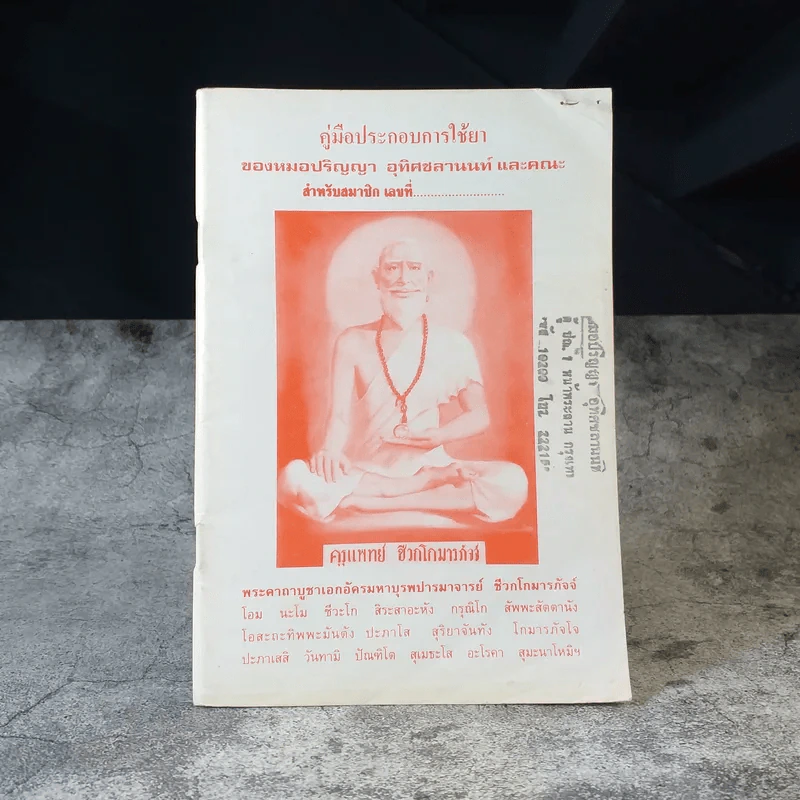 คู่มือประกอบการใช้ยา
ของหมอปริญญา อุทิศชลานนท์ และคณะ
สำหรับสมาชิก เลขที่..........................
ครูแพทย์ ชีวกโกมารภัจจ์
พระคาถาบูชาเอกอัครมหาบุรพปารมาจารย์ ชีวกโกมารภัจจ์
โอม นะโม ชีวะโก สิระสาอะหัง กรุณิโก สัพพะสัตตานัง
โอสะถะทิพพะมันตัง ปะภาโส สุริยาจันทัง โกมารภัจโจ
ปะภาเสสิ วันทามิ ปัณฑิโต สุเมธะโส อะโรคา สุมะนาโหมิฯ
หมอปริญญา อุทิศชลานนท์
ตู้ ปณ. 1 หน้าพระลาน กรุงเทพ
10200 โทร.